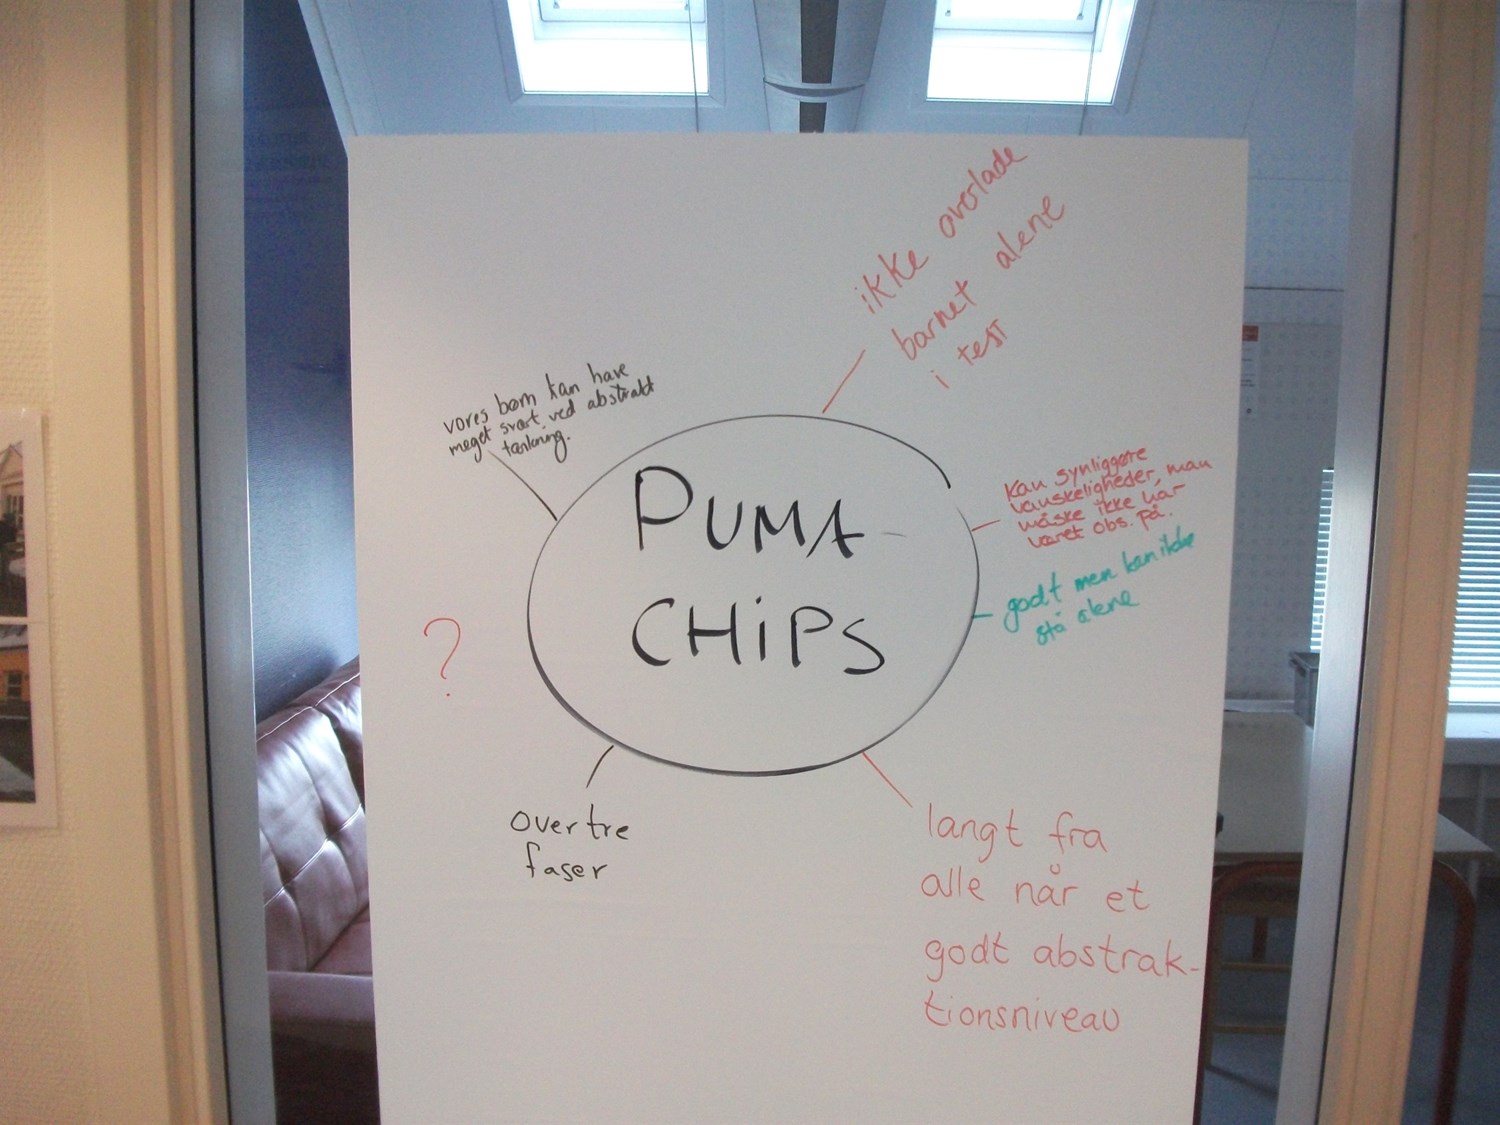 ikke overlade
barnet alene
i test
vores børn kan have
meget svært ved abstrakt
tænkning.
PUMA
CHiPS
kan synliggøre
vanskeligheder, man
måske ikke har
været obs. på.
godt men kan ikke
stå alene
?
over tre
faser
langt fra
alle når et
godt abstrak-
tionsniveau